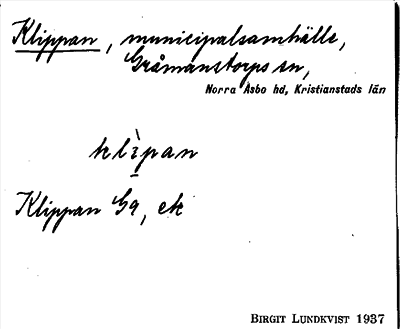 Klippan, municipalsamhälle,
Gråmanstorps sn,
Norra Åsbo hd, Kristianstads län
klìpan
Klippan Gg, ek
BIRGIT LUNDKVIST 1937